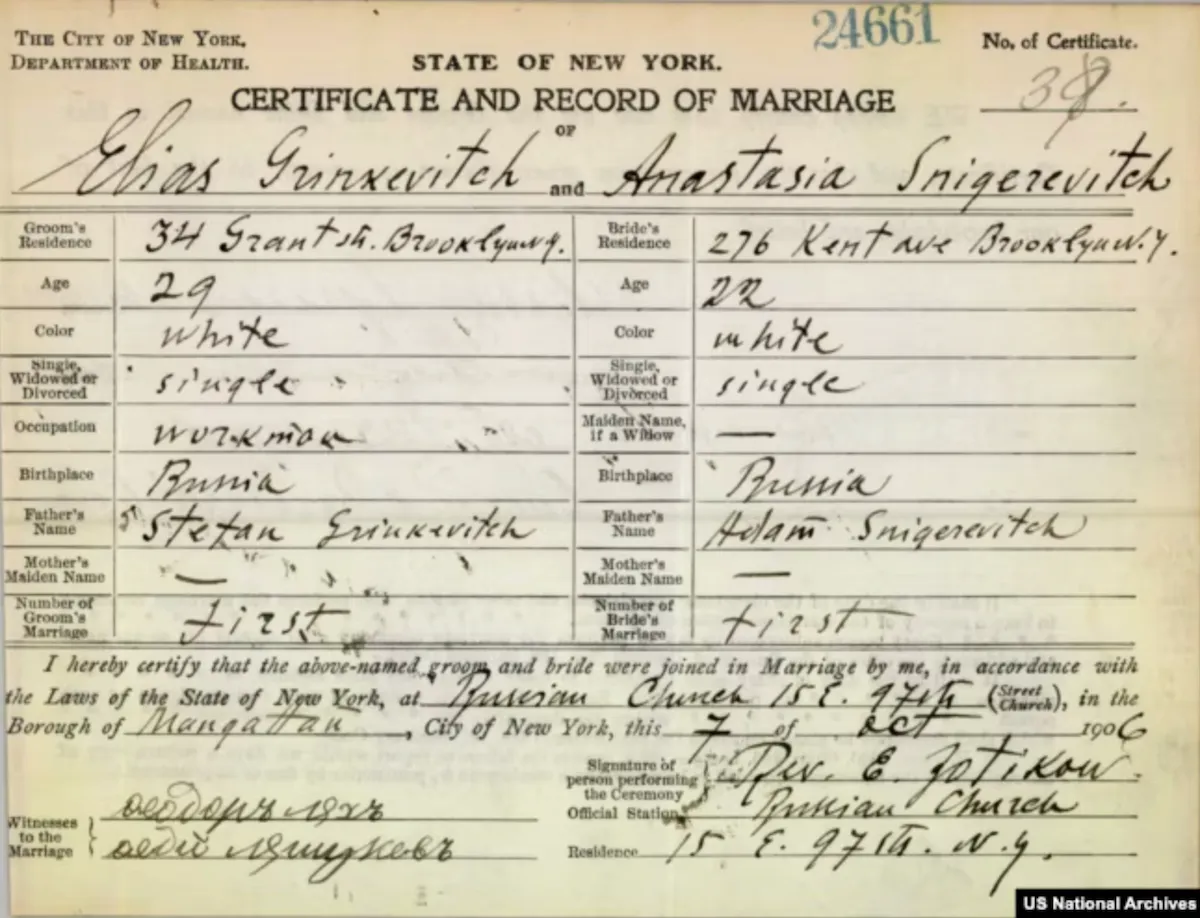 THE CITY OF NEW YORK.
DEPARTMENT OF HEALTH.
24661
No. of Certificate.
STATE OF NEW YORK.
CERTIFICATE AND RECORD OF MARRIAGE
OF
Elias Grinkevitch and Anastasia Snigerevitch
Groom's Residence 34 Grant str. Brooklyn N.Y. Bride's Residence 276 Kent ave Brooklyn N.Y.
Age 29 Age 22
Color white Color white
Single, Widowed or Divorced single Single, Widowed or Divorced single
Occupation workman Maiden Name, if a Widow —
Birthplace Russia Birthplace Russia
Father's Name Stefan Grinkevitch Father's Name Adam Snigerevitch
Mother's Maiden Name — Mother's Maiden Name —
Number of Groom's Marriage first Number of Bride's Marriage first
I hereby certify that the above-named groom and bride were joined in Marriage by me, in accordance with
the Laws of the State of New York, at Russian Church 15 E. 97th (Street Church), in the
Borough of Mangattan, City of New York, this 7 of oct 1906
Signature of person performing the Ceremony Rev. E. Zotikow.
Witnesses to the Marriage Ѳеодоръ Ляхъ
Official Station Russian Church
Residence 15 E. 97th. N.Y.
US National Archives